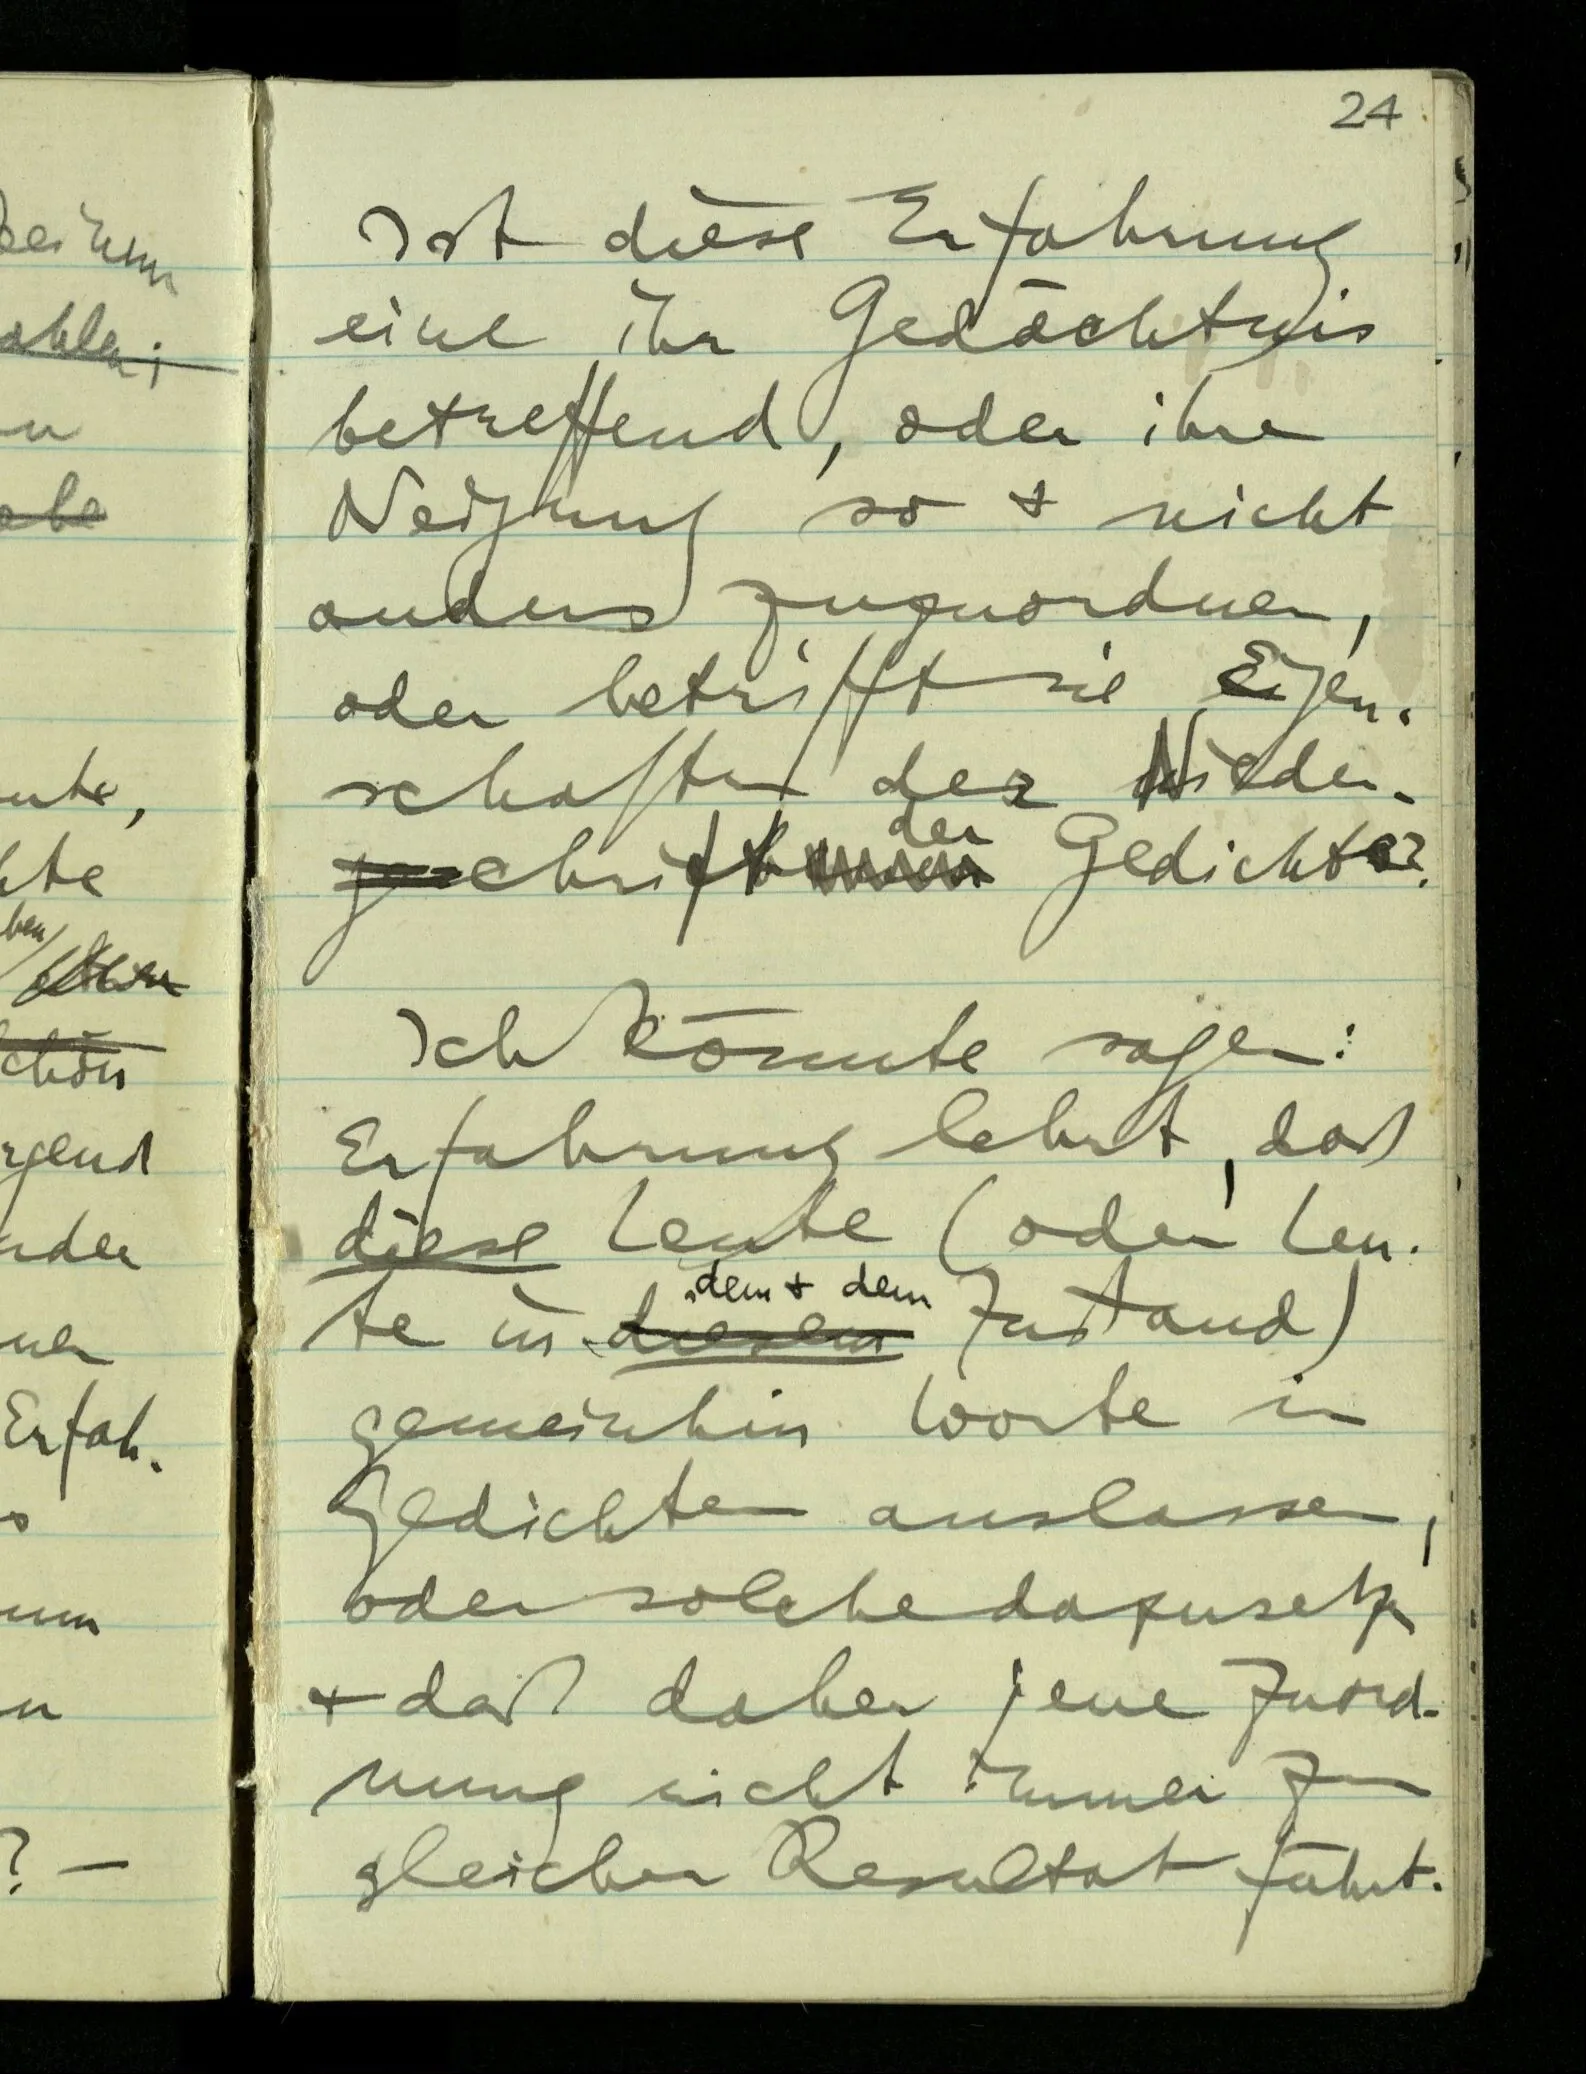 24
Ist diese Erfahrung
eine ihr Gedächtnis
betreffend, oder ihre
Neigung so + nicht
anders zuzuordnen,
oder betrifft sie Eigen-
schaften der Nieder-
schrift der Gedichte?
Ich könnte sagen:
Erfahrung lehrt, daß
diese Leute (oder Leu-
te in diesem dem + dem Zustand)
gemeinhin Worte in
Gedichten auslassen,
oder solche dazusetzen
+ daß daher jene Zuord-
nung nicht immer zum
gleichen Resultat führt.
ute,
hte
ben
chön
rgend
nder
ner
Erfah-
? —